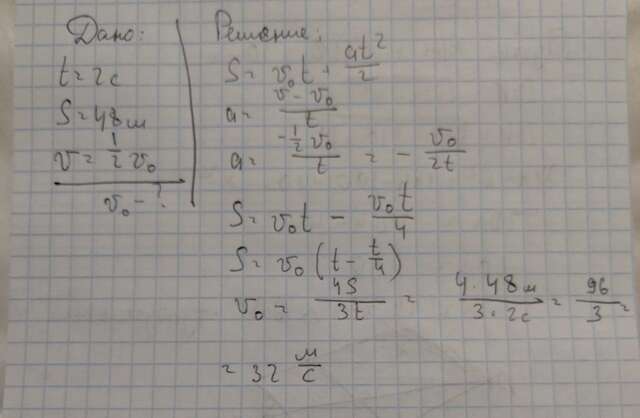 Дано:
t = 2c
S = 48м
v = 1/2 v₀
v₀ - ?
Решение:
S = v₀t + at²/2
a = v - v₀/t
a = -1/2 v₀/t = - v₀/2t
S = v₀t - v₀t/4
S = v₀(t - t/4)
v₀ = 4S/3t = 4·48м/3·2c = 96/3 =
= 32 м/с